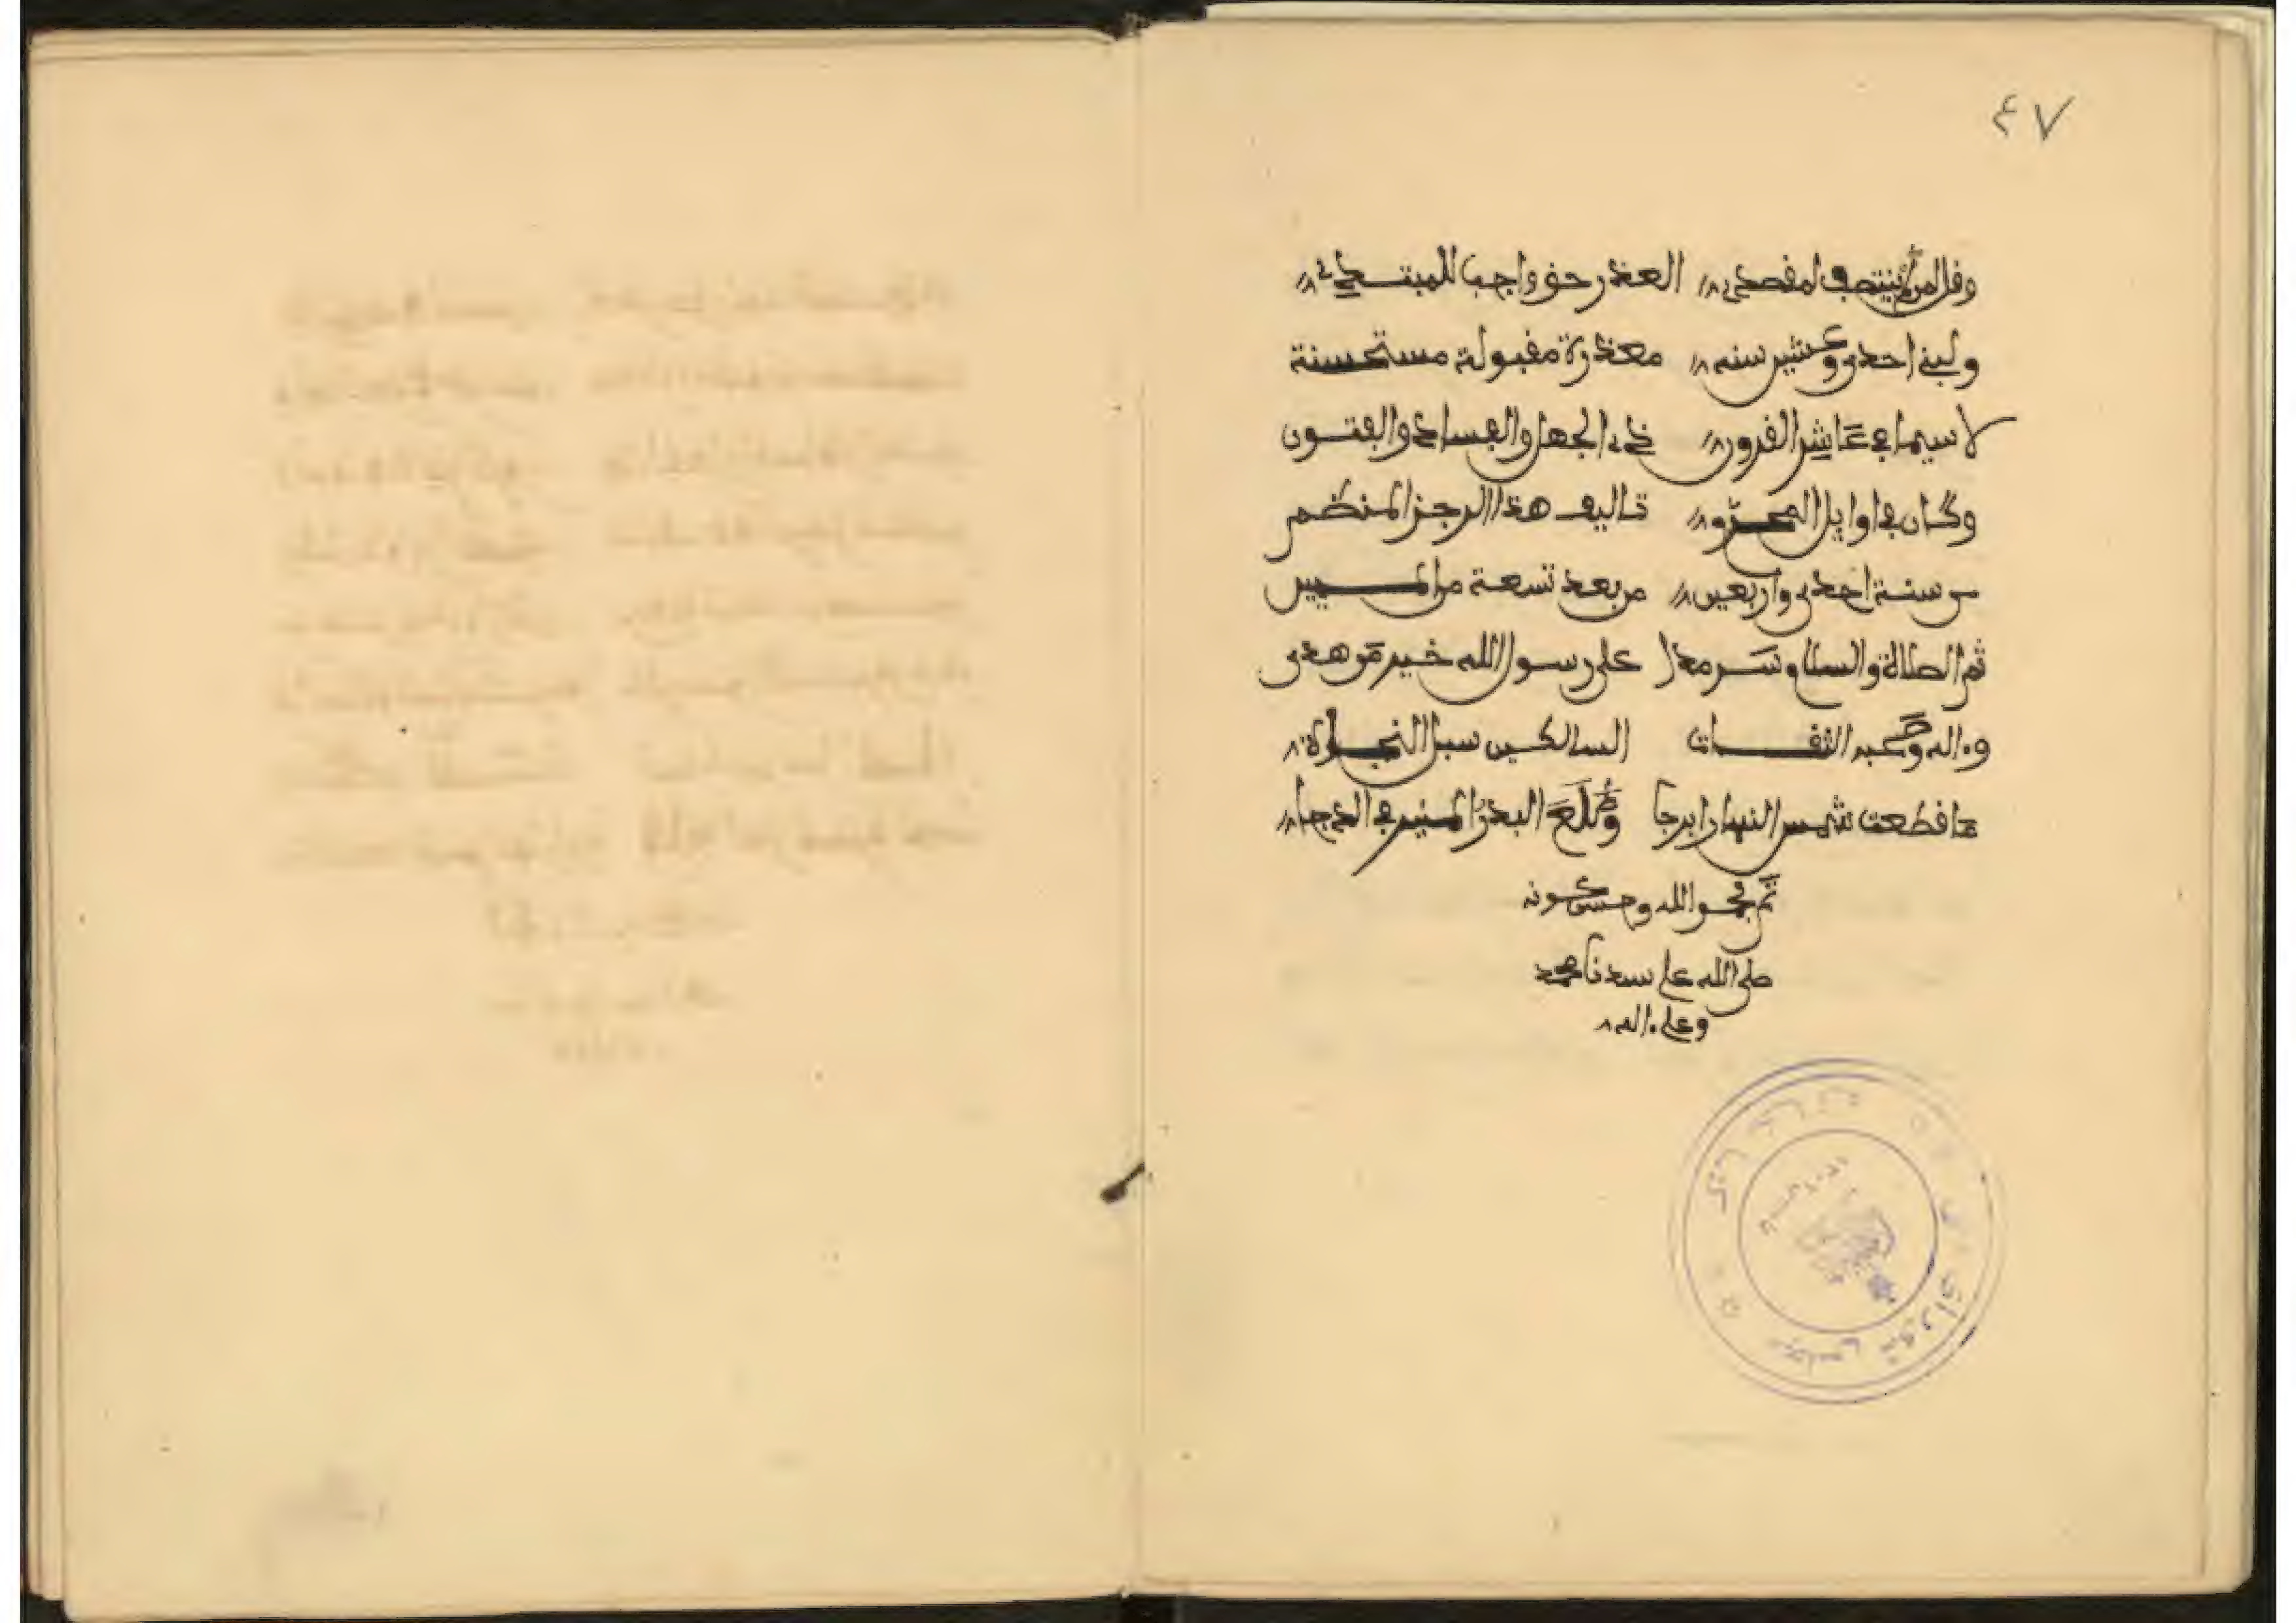 ٤٧
وقل لمن لم ينتصف لمقصدي العذر حق واجب للمبتدي
ولبني احدى وعشرين سنه معذرة مقبولة مستحسنة
لا سيما في عاشر القرون ذي الجهل والفساد والفتون
وكان في اوايل المحرم تاليف هذا الرجز المنظم
من سنة احدى واربعين من بعد تسعة من المييين
ثم الصلاة والسلام سرمدا على رسول الله خير من هدى
وءاله وصحبه الثقات السالكين سبل النجاة
ما قطعت شمس النهار ابرجا وطلع البدر المنير في الدجا
تم بحمد الله وحسن عونه
صلى الله على سيدنا محمد
وعلى ءاله